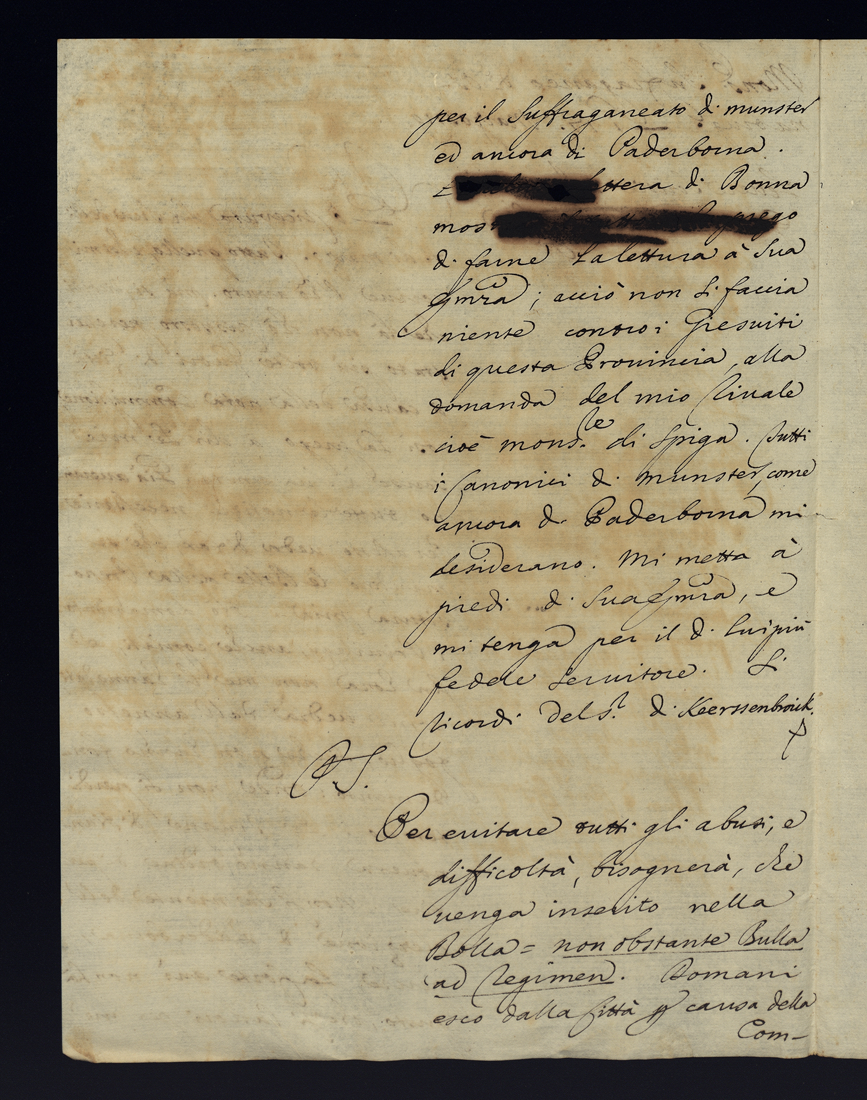 per il Suffraganeato di munster
ed ancora di Paderborna.
lettera di Bonna
mos prego
di farne la lettura à Sua
Em̃za; acciò non si faccia
niente contro i Giesuiti
di questa Provincia, alla
domanda del mio Rivale
cioè mons.le di Spiga. Tutti
i Canonici di munster, come
ancora di Paderborna mi
desiderano. Mi metta à
piedi di Sua Em̃za, e
mi tenga per il di lui più
fedele servitore. Si
ricordi del S.r di Keerssenbroick.
PS.
Per evitare tutti gli abusi, e
difficoltà, bisognerà, che
venga inserito nella
Bolla = non obstante Bulla
ad Regimen. Domani
esco dalla Città p causa della
Com-